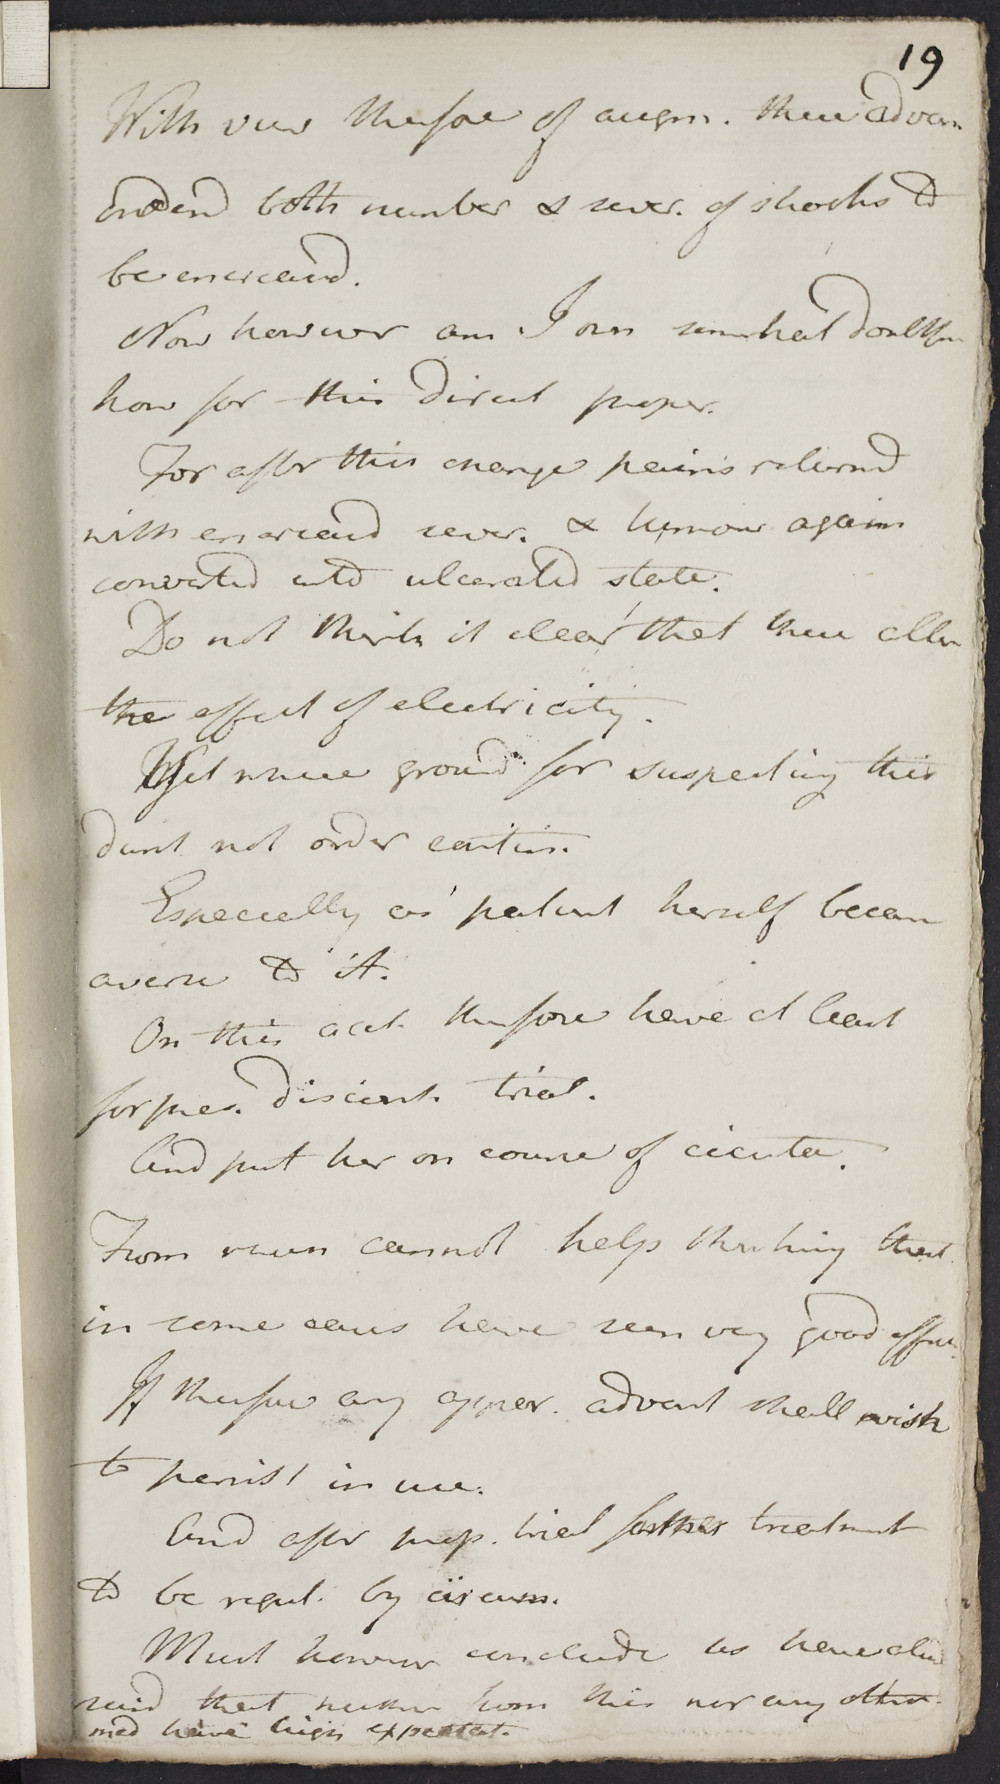 19
With view therfore of augm. these advan
ordered both number & sever. of shocks to
be encreasd.
Now however am I own somwhat doubtfu
how far this direct proper.
For after this change pains returnd
with encreasd sever. & humour again
converted into ulcerated state.
Do not think it clear that these alter
the effect of electricity.
Yet where ground for suspecting this
durst not order continu.
Especially as patient herself becam
averse to it.
On this acct. therfore have at least
for pres. discont. trial.
And put her on course of cicuta.
From whence cannot help thinking that
in some cases have seen very good effec
If therfore any appear. advant shall wish
to persist in use.
And after prop. trial farther treatment
to be regul. by circum.
Must however conclude as have alrea
said that neither from this nor any other
med have high expectat.